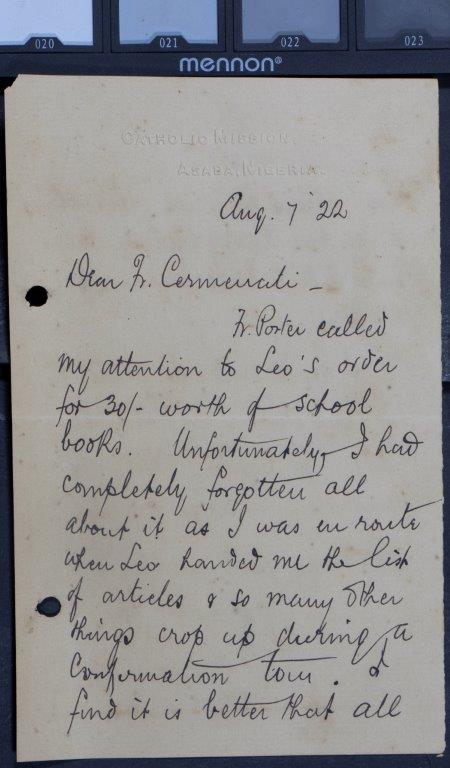 020 021 022 023
mennon®
CATHOLIC MISSION,
ASABA, NIGERIA.
Aug. 7 '22
Dear Fr. Cermenati –
Fr. Porter called
my attention to Leo's order
for 30/- worth of school
books. Unfortunately I had
completely forgotten all
about it as I was en route
when Leo handed me the list
of articles & so many other
things crop up during a
Confirmation tour. I
find it is better that all